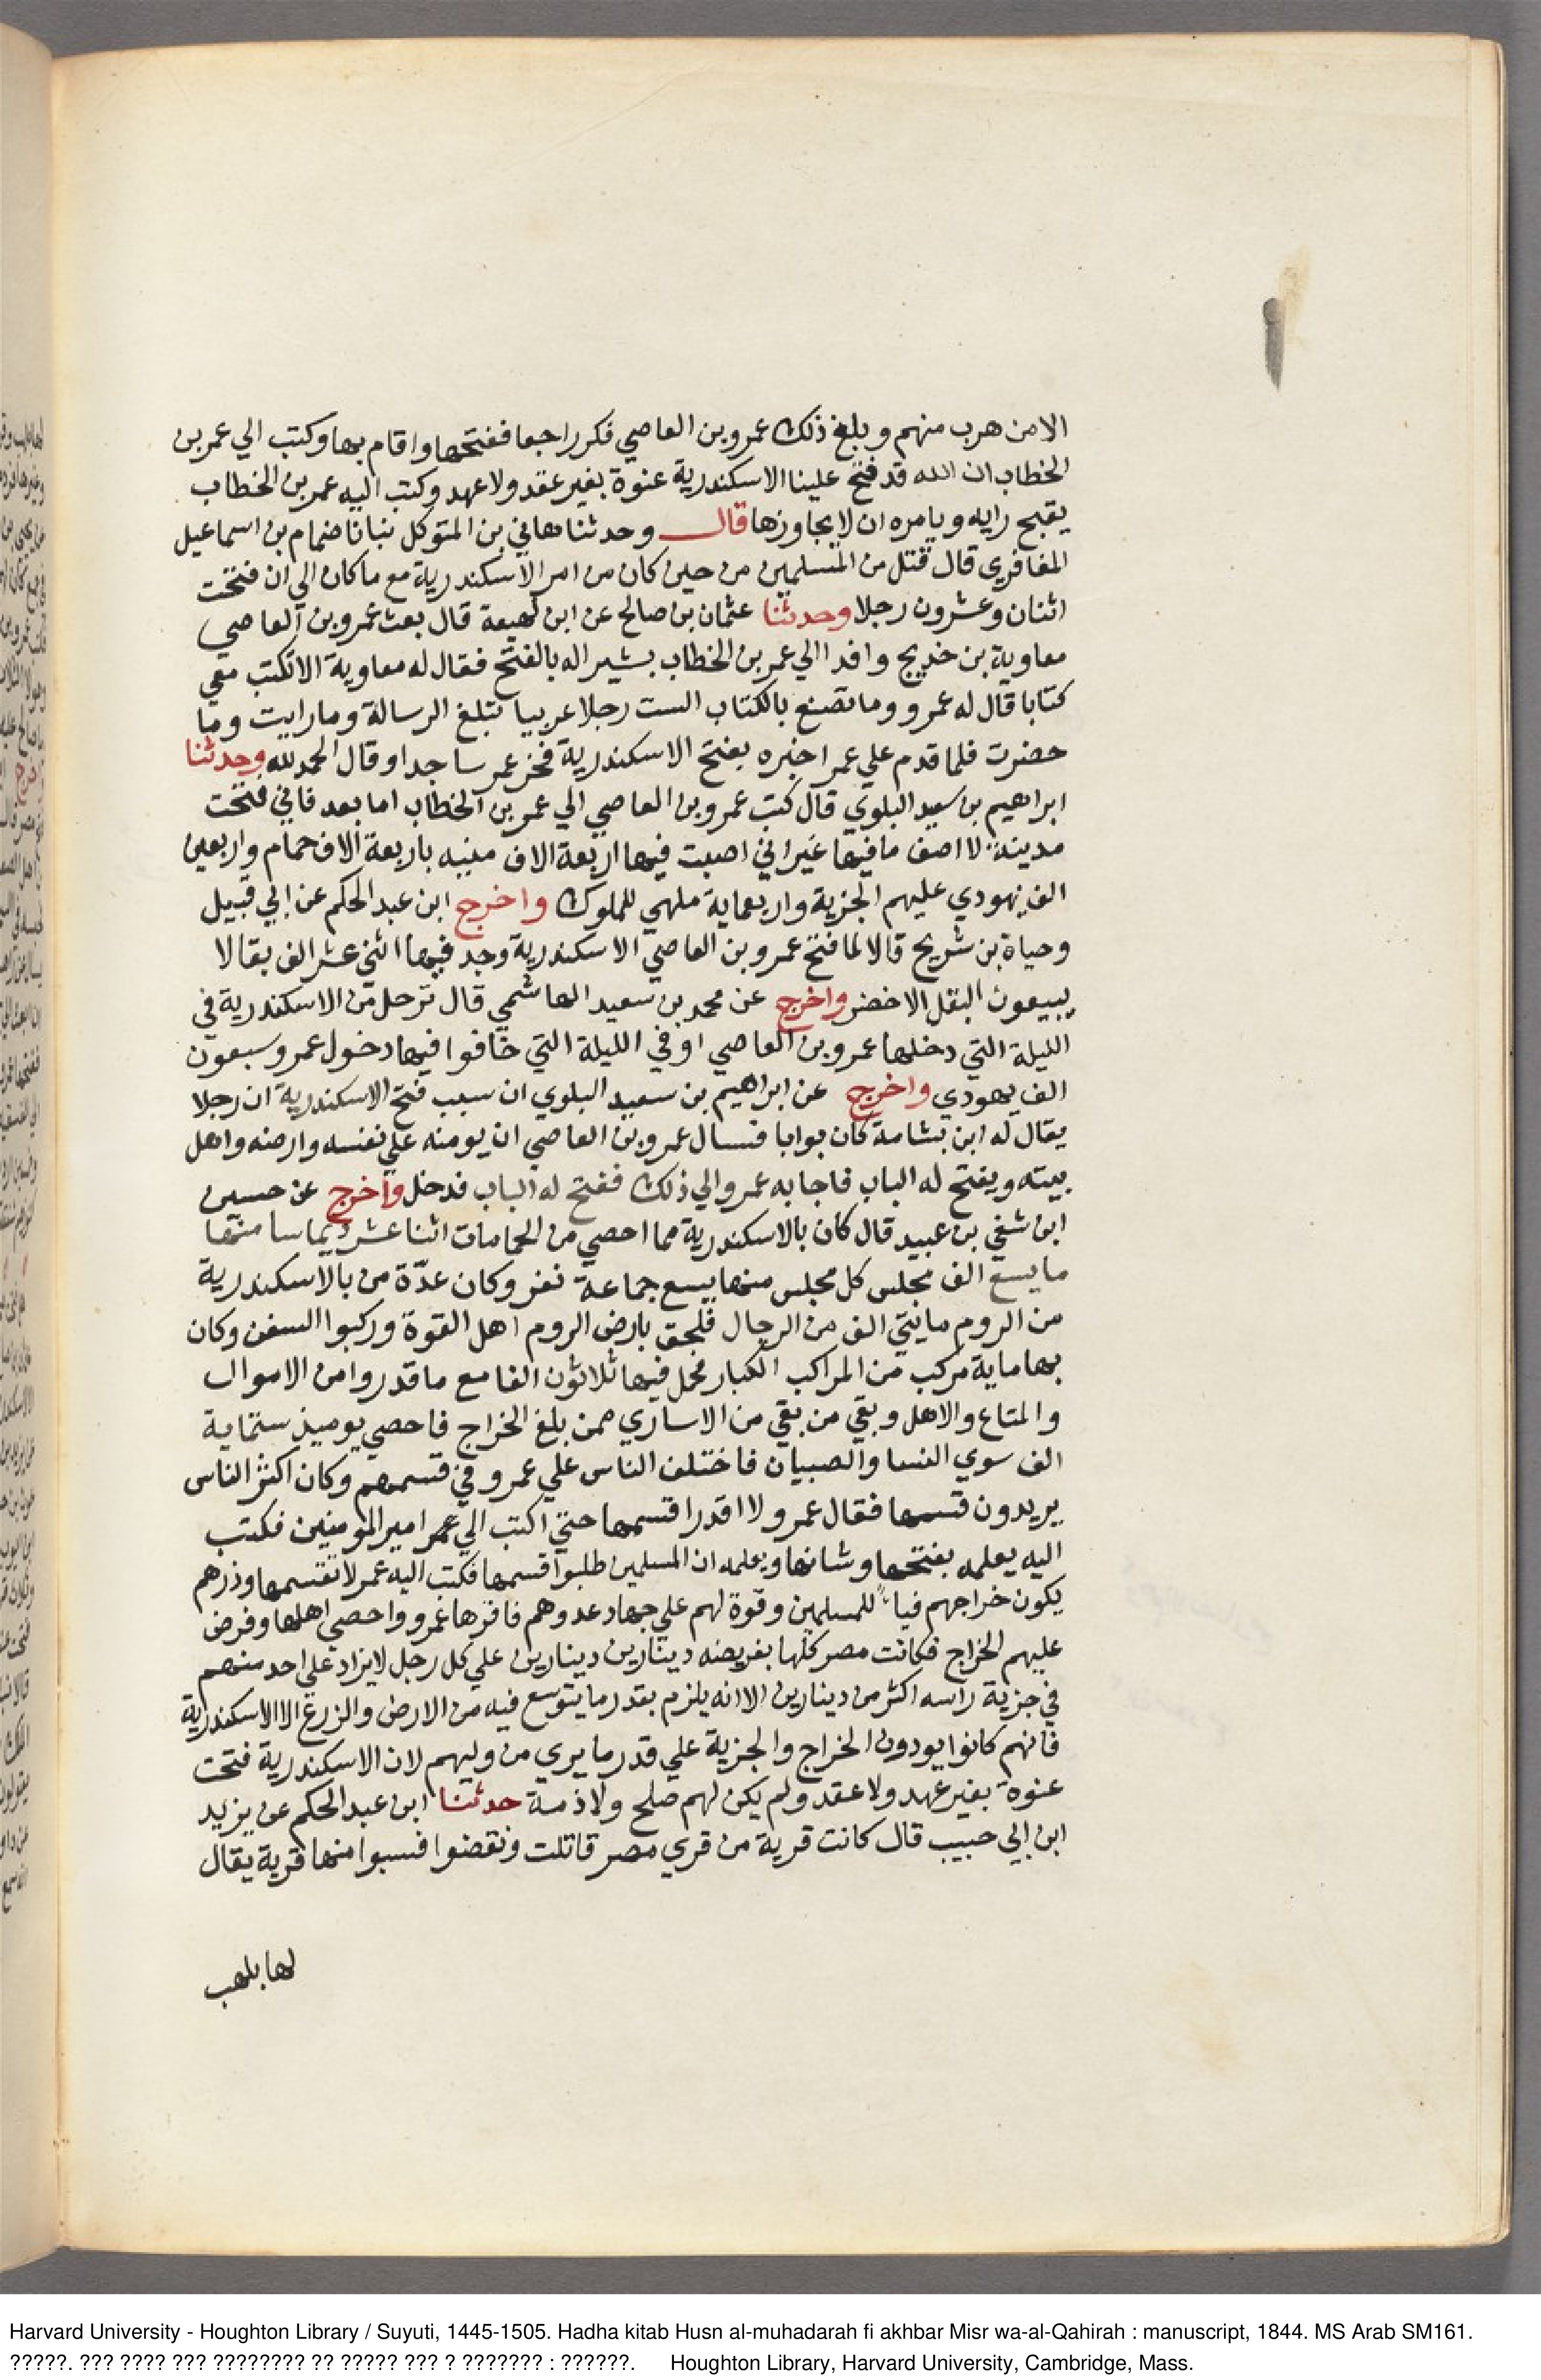 الا من هرب منهم وبلغ ذلك عمرو بن العاصي فكر راجعا ففتحها واقام بها وكتب الي عمر بن
الخطاب ان الله قد فتح علينا الاسكندرية عنوة بغير عقد ولا عهد وكتب اليه عمر بن الخطاب
يقبح رايه ويامره ان لا يجاوزها قال وحدثنا هاني بن المتوكل نبانا ضمام بن اسماعيل
المغافري قال قتل من المسلمين من حين كان من امر الاسكندرية مع ما كان الي ان فتحت
اثنان وعشرون رجلا وحدثنا عثمان بن صالح عن ابن لهيعة قال بعث عمرو بن العاصي
معاوية بن خديج وافدا الي عمر بن الخطاب بشيرا له بالفتح فقال له معاوية الا تكتب معي
كتابا قال له عمرو وما تصنع بالكتاب الست رجلا عربيا تبلغ الرسالة وما رايت وما
حضرت فلما قدم علي عمر اخبره بفتح الاسكندرية فخر عمر ساجدا وقال الحمد لله وحدثنا
ابراهيم بن سعيد البلوي قال كتب عمرو بن العاصي الي عمر بن الخطاب اما بعد فاني فتحت
مدينة لا اصف ما فيها غير اني اصبت فيها اربعة الاف منيه باربعة الاف حمام واربعين
الف يهودي عليهم الجزية واربعماية ملهي للملوك واخرج ابن عبد الحكم عن ابي قبيل
وحياة بن شريح قالا لما فتح عمرو بن العاصي الاسكندرية وجد فيها اثني عشر الف بقالا
يبيعون البقل الاخضر واخرج عن محمد بن سعيد الهاشمي قال ترحل من الاسكندرية في
الليلة التي دخلها عمرو بن العاصي او في الليلة التي خافوا فيها دخول عمرو سبعون
الف يهودي واخرج عن ابراهيم بن سعيد البلوي ان سبب فتح الاسكندرية ان رجلا
يقال له ابن بشامة كان بوابا فسال عمرو بن العاصي ان يومنه علي نفسه وارضه واهل
بيته ويفتح له الباب فاجابه عمرو الي ذلك ففتح له الباب فدخل واخرج عن حسين
ابن شفي بن عبيد قال كان بالاسكندرية مما احصي من الحمامات اثنا عشر ديماسا منها
ما يسع الف مجلس كل مجلس منها يسع جماعة نفر وكان عدّة من بالاسكندرية
من الروم مايتي الف من الرجال فلحق بارض الروم اهل القوة وركبوا السفن وكان
بها ماية مركب من المراكب الكبار فحمل فيها ثلاثون الفا مع ما قدروا من الاموال
والمتاع والاهل وبقي من بقي من الاساري ممن بلغ الخراج فاحصي يوميذ ستماية
الف سوي النسا والصبيان فاختلف الناس علي عمرو في قسمهم وكان اكثر الناس
يريدون قسمها فقال عمرو لا اقدر اقسمها حتي اكتب الي عمر امير المومنين فكتب
اليه يعلمه بفتحها وشانها ويعلمه ان المسلمين طلبوا قسمها فكتب اليه عمر لا تقسمها وذرهم
يكون خراجهم فيا للمسلمين وقوة لهم علي جهاد عدوهم فاقرها عمرو واحصي اهلها وفرض
عليهم الخراج فكانت مصر كلها بفريضه دينارين دينارين علي كل رجل لا يزاد علي احد منهم
في جزية راسه اكثر من دينارين الا انه يلزم بقدر ما يتوسع فيه من الارض والزرع الا الاسكندرية
فانهم كانوا يودون الخراج والجزية علي قدر ما يري من وليهم لان الاسكندرية فتحت
عنوة بغير عهد ولا عقد ولم يكن لهم صلح ولا ذمة حدثنا ابن عبد الحكم عن يزيد
ابن ابي حبيب قال كانت قرية من قري مصر قاتلت ونقضوا فسبوا منها قرية يقال
لها بلهب
Harvard University - Houghton Library / Suyuti, 1445-1505. Hadha kitab Husn al-muhadarah fi akhbar Misr wa-al-Qahirah : manuscript, 1844. MS Arab SM161.
?????. ??? ???? ??? ???????? ?? ????? ??? ? ??????? : ??????. Houghton Library, Harvard University, Cambridge, Mass.